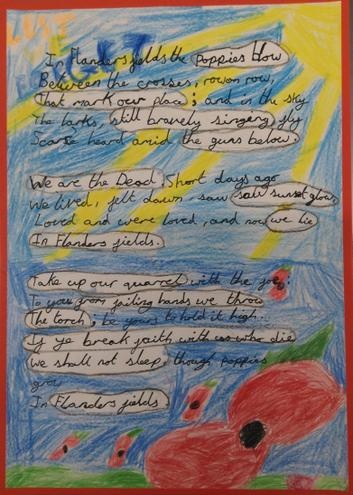 In Flanders fields the poppies blow
Between the crosses, row on row,
That mark our place; and in the sky
The larks, still bravely singing, fly
Scarce heard amid the guns below.
We are the Dead. Short days ago
We lived, felt dawn, saw sunset glow,
Loved and were loved, and now we lie
In Flanders fields.
Take up our quarrel with the foe;
To you from failing hands we throw
The torch; be yours to hold it high.
If ye break faith with us who die
We shall not sleep, though poppies
grow
In Flanders fields